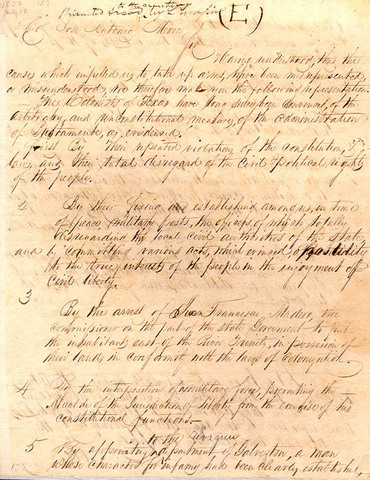 (E)
To San Antonio Mexia
Sir
Having understood, that the
causes which impelled us to take up arms, have been misrepresented,
or misunderstood, we therefore make you the following representation.
The Colonists of Texas have long since been convinced, of the
arbitrary and unconstitutional measures, of the administration
of Bustamente, as evinced
First By their repeated violation of the constitution,
and their total disregard of the Civil & political rights
of the people.
2
By their fixing and establishing among us, in time
of peace military posts, the officers of which totally
disregarding the local civil authorities of the State
and by committing various acts, which evinced, opposition
to the true interest of the people in the enjoyment of
Civil liberty.
3
By the arrest of Juan Francisco Madero, the
commissioner on the part of the State Government to put
the inhabitants east of the River Trinity, in possession of
their lands in conformity with the laws of Colonization.
4 By the interposition of a military force, preventing the
Alcalde of the Jurisdiction of Liberty from the exercise of his
constitutional functions.
5 By appointing to the revenue department of Galveston, a man
whose character for infamy had been clearly established,